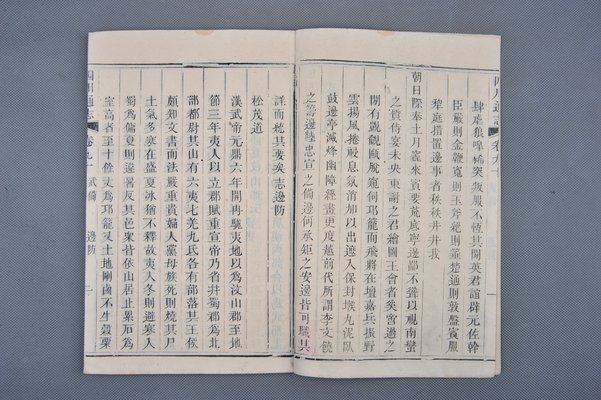 四川通志
卷九十
肆虐狼嘷狶突叛服不恆其間英君誼辟元佐幹
臣嚴則金鞭寬則玉斧絕則薰楚通則敦盤賓服
犂庭措置邊事者秩秩井井我
朝日際奉土月竁來賓要荒底寧邊鄙不聳以視南蠻
之貢侍宴未央東謝之君繪圖王會者矣豈邊之
閒有覬覦甌脫窺伺邛籠而飛將在壇嘉兵振野
雲揚風捲殺息氛消加以出遮入保封埃九泥臥
鼓邊亭滅烽幽障經畫更度越前代所謂李文饒
之籌邊陸忠宣之備邊何承矩之安邊皆可驗其
詳而梳其要矣志邊防
松茂道
漢武帝元鼎六年開冉駹夷地以為汶山郡至地
節三年夷人以立郡賦重宣帝乃省并蜀郡為北
部都尉其山有六夷七羌九氐各有部落其王侯
頗知文書而法嚴重貴婦人黨母族死則燒其尸
土氣多寒在盛夏冰猶不釋故夷人冬則避寒入
蜀為傭夏則違暑反其邑眾皆依山居止累石為
室高者至十餘丈為邛籠又土地剛鹵不生穀粟
四川通志
卷九十
武備
邊防